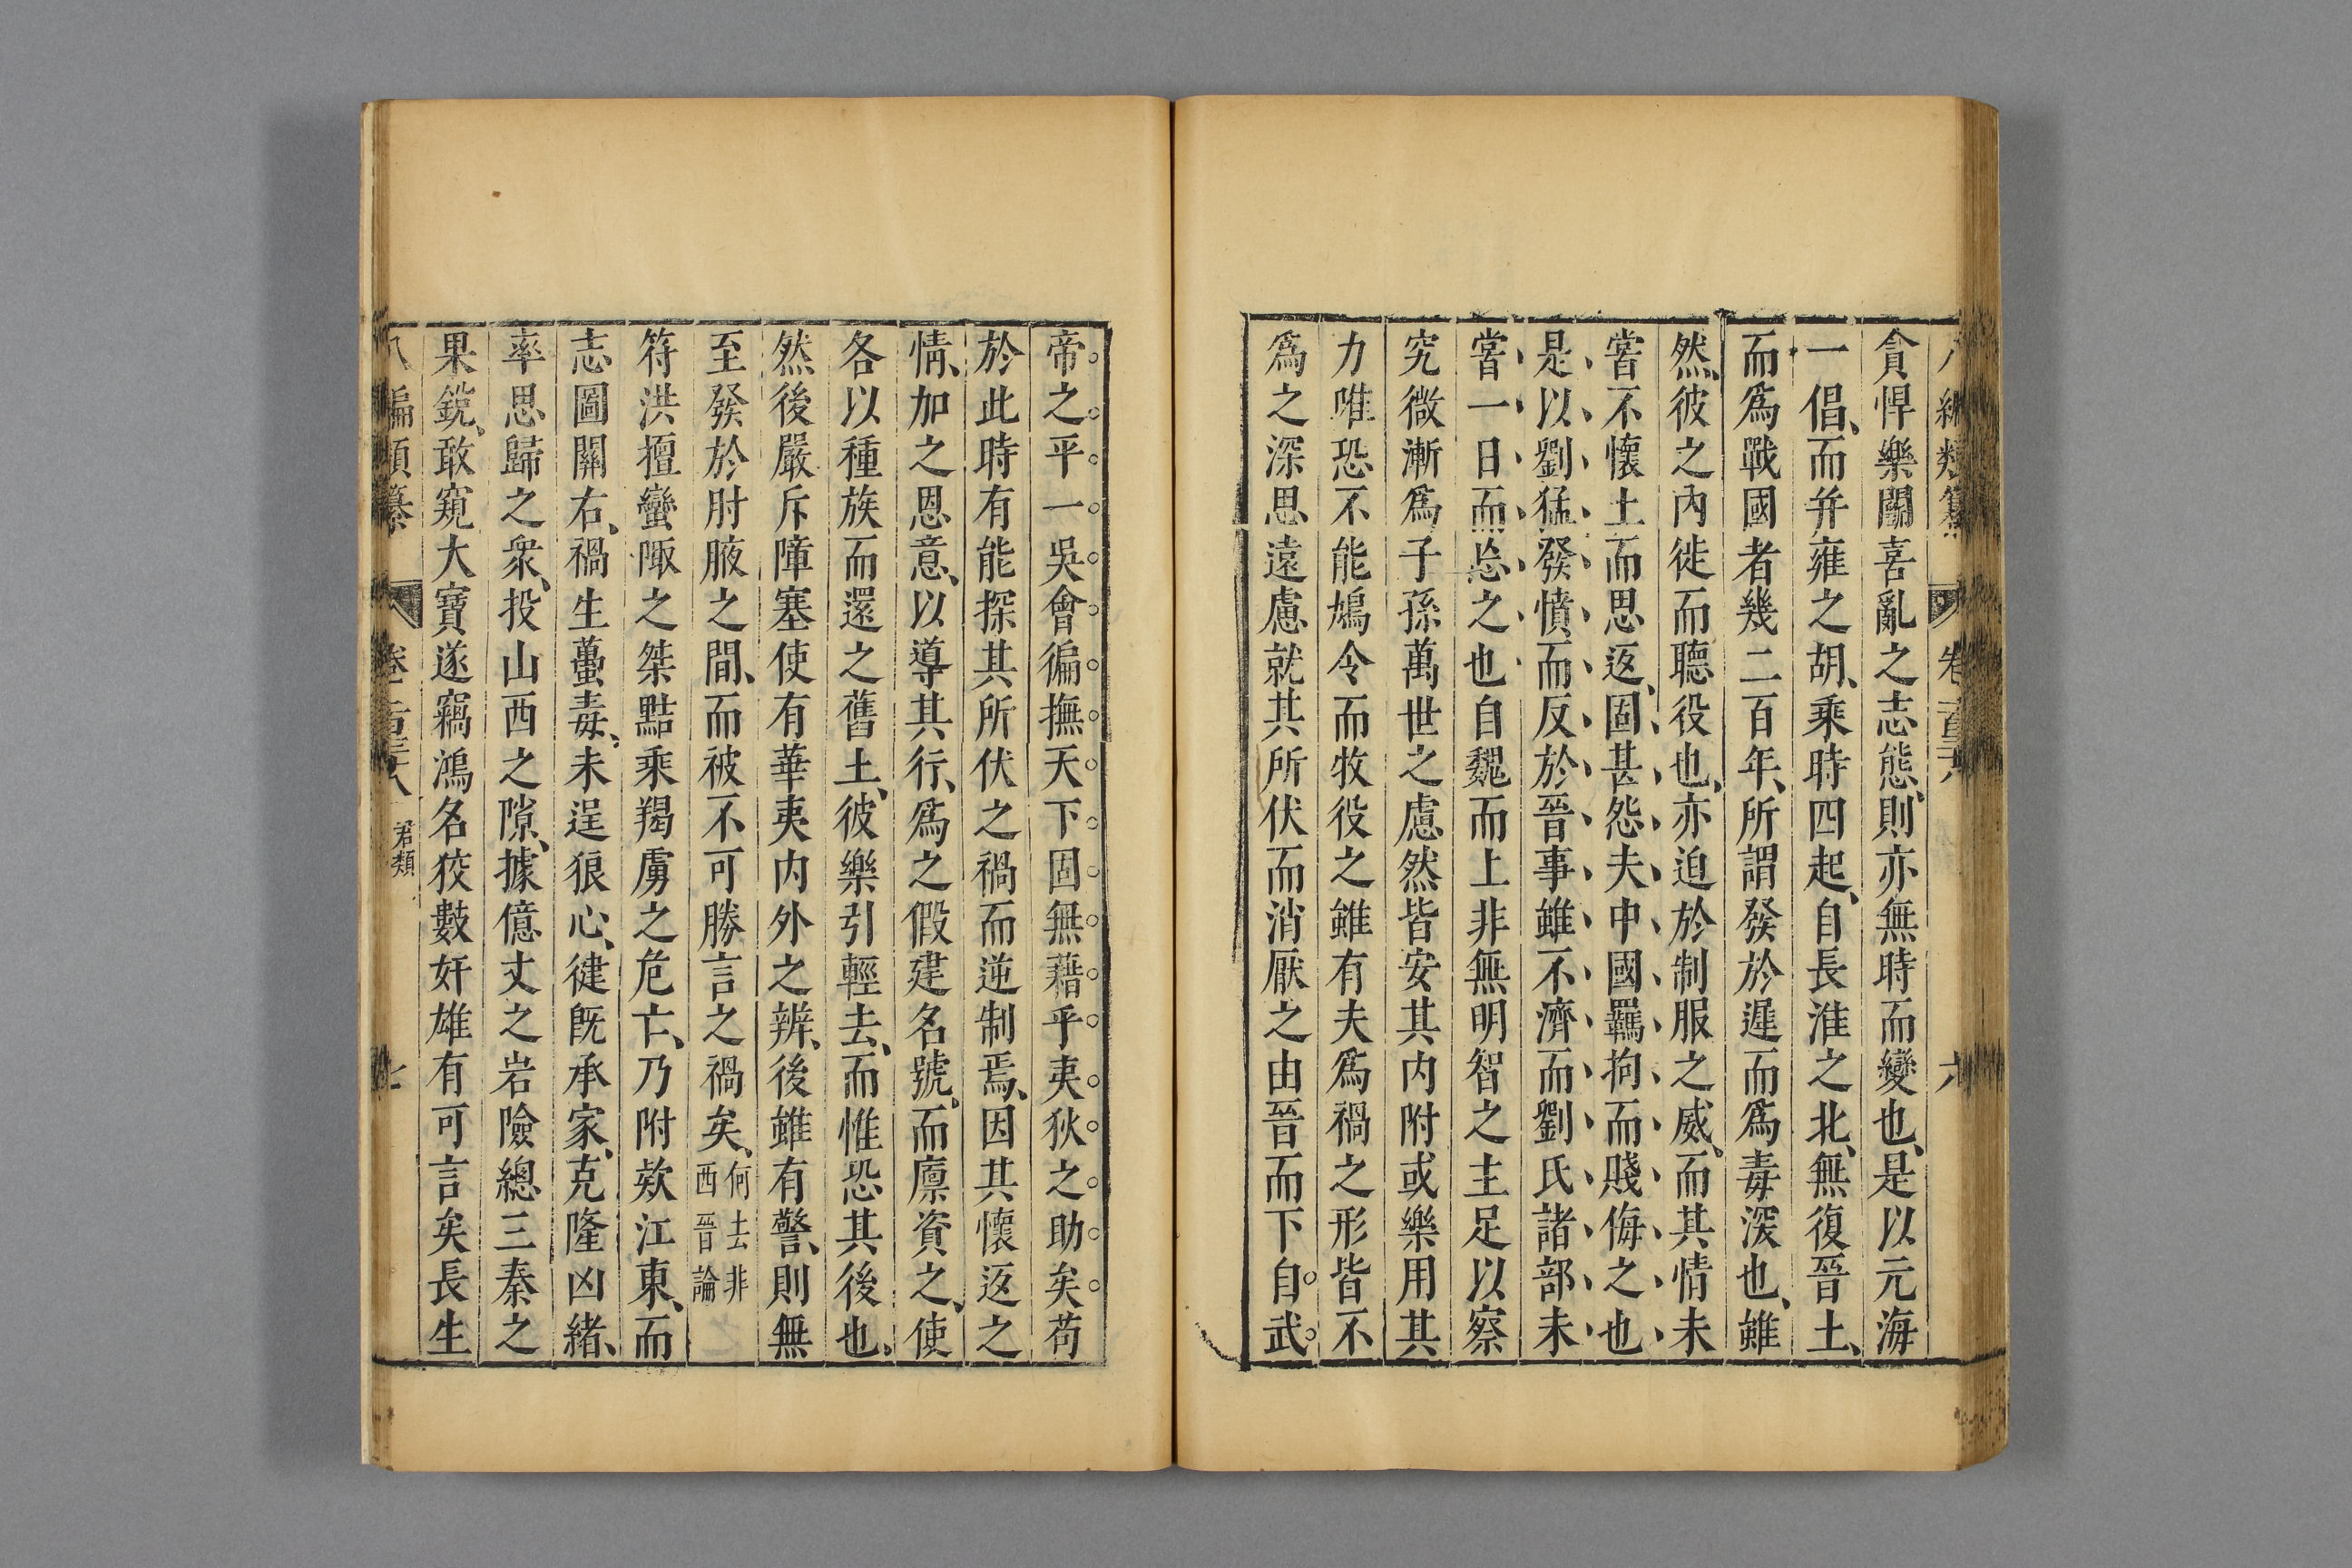 貪悍樂鬭喜亂之志態則亦無時而變也是以元海
一倡而并雍之胡乘時四起自長淮之北無復晉土
而爲戰國者幾二百年所謂發於遲而爲毒深也雖
然彼之內徙而聽役也亦迫於制服之威而其情未
嘗不懷土而思返固甚怨夫中國羈拘而賤侮之也
是以劉猛發憤而反於晉事雖不濟而劉氏諸部未
嘗一日而忘之也自魏而上非無明智之主足以察
究微漸爲子孫萬世之慮然皆安其内附或樂用其
力唯恐不能鳩令而牧役之雖有夫爲禍之形皆不
爲之深思遠慮就其所伏而消厭之由晉而下自武
帝之平一吳會徧撫天下固無藉乎夷狄之助矣苟
於此時有能探其所伏之禍而逆制焉因其懷返之
情加之恩意以導其行爲之假建名號而廪資之使
各以種族而還之舊土彼樂引輕去而惟恐其後也
然後嚴斥障塞使有華夷内外之辨後雖有警則無
至發於肘腋之間而被不可勝言之禍矣何去非西晉論
符洪擅蠻陬之桀黠乘羯虜之危亡乃附欵江東而
志圖關右禍生蠆毒未逞狼心徤旣承家克隆凶緒
率思歸之衆投山西之隙據億丈之岩險總三秦之
果銳敢窺大寶遂竊鴻名狡數奸雄有可言矣長生
八編類纂 卷一百三十八 君類 七